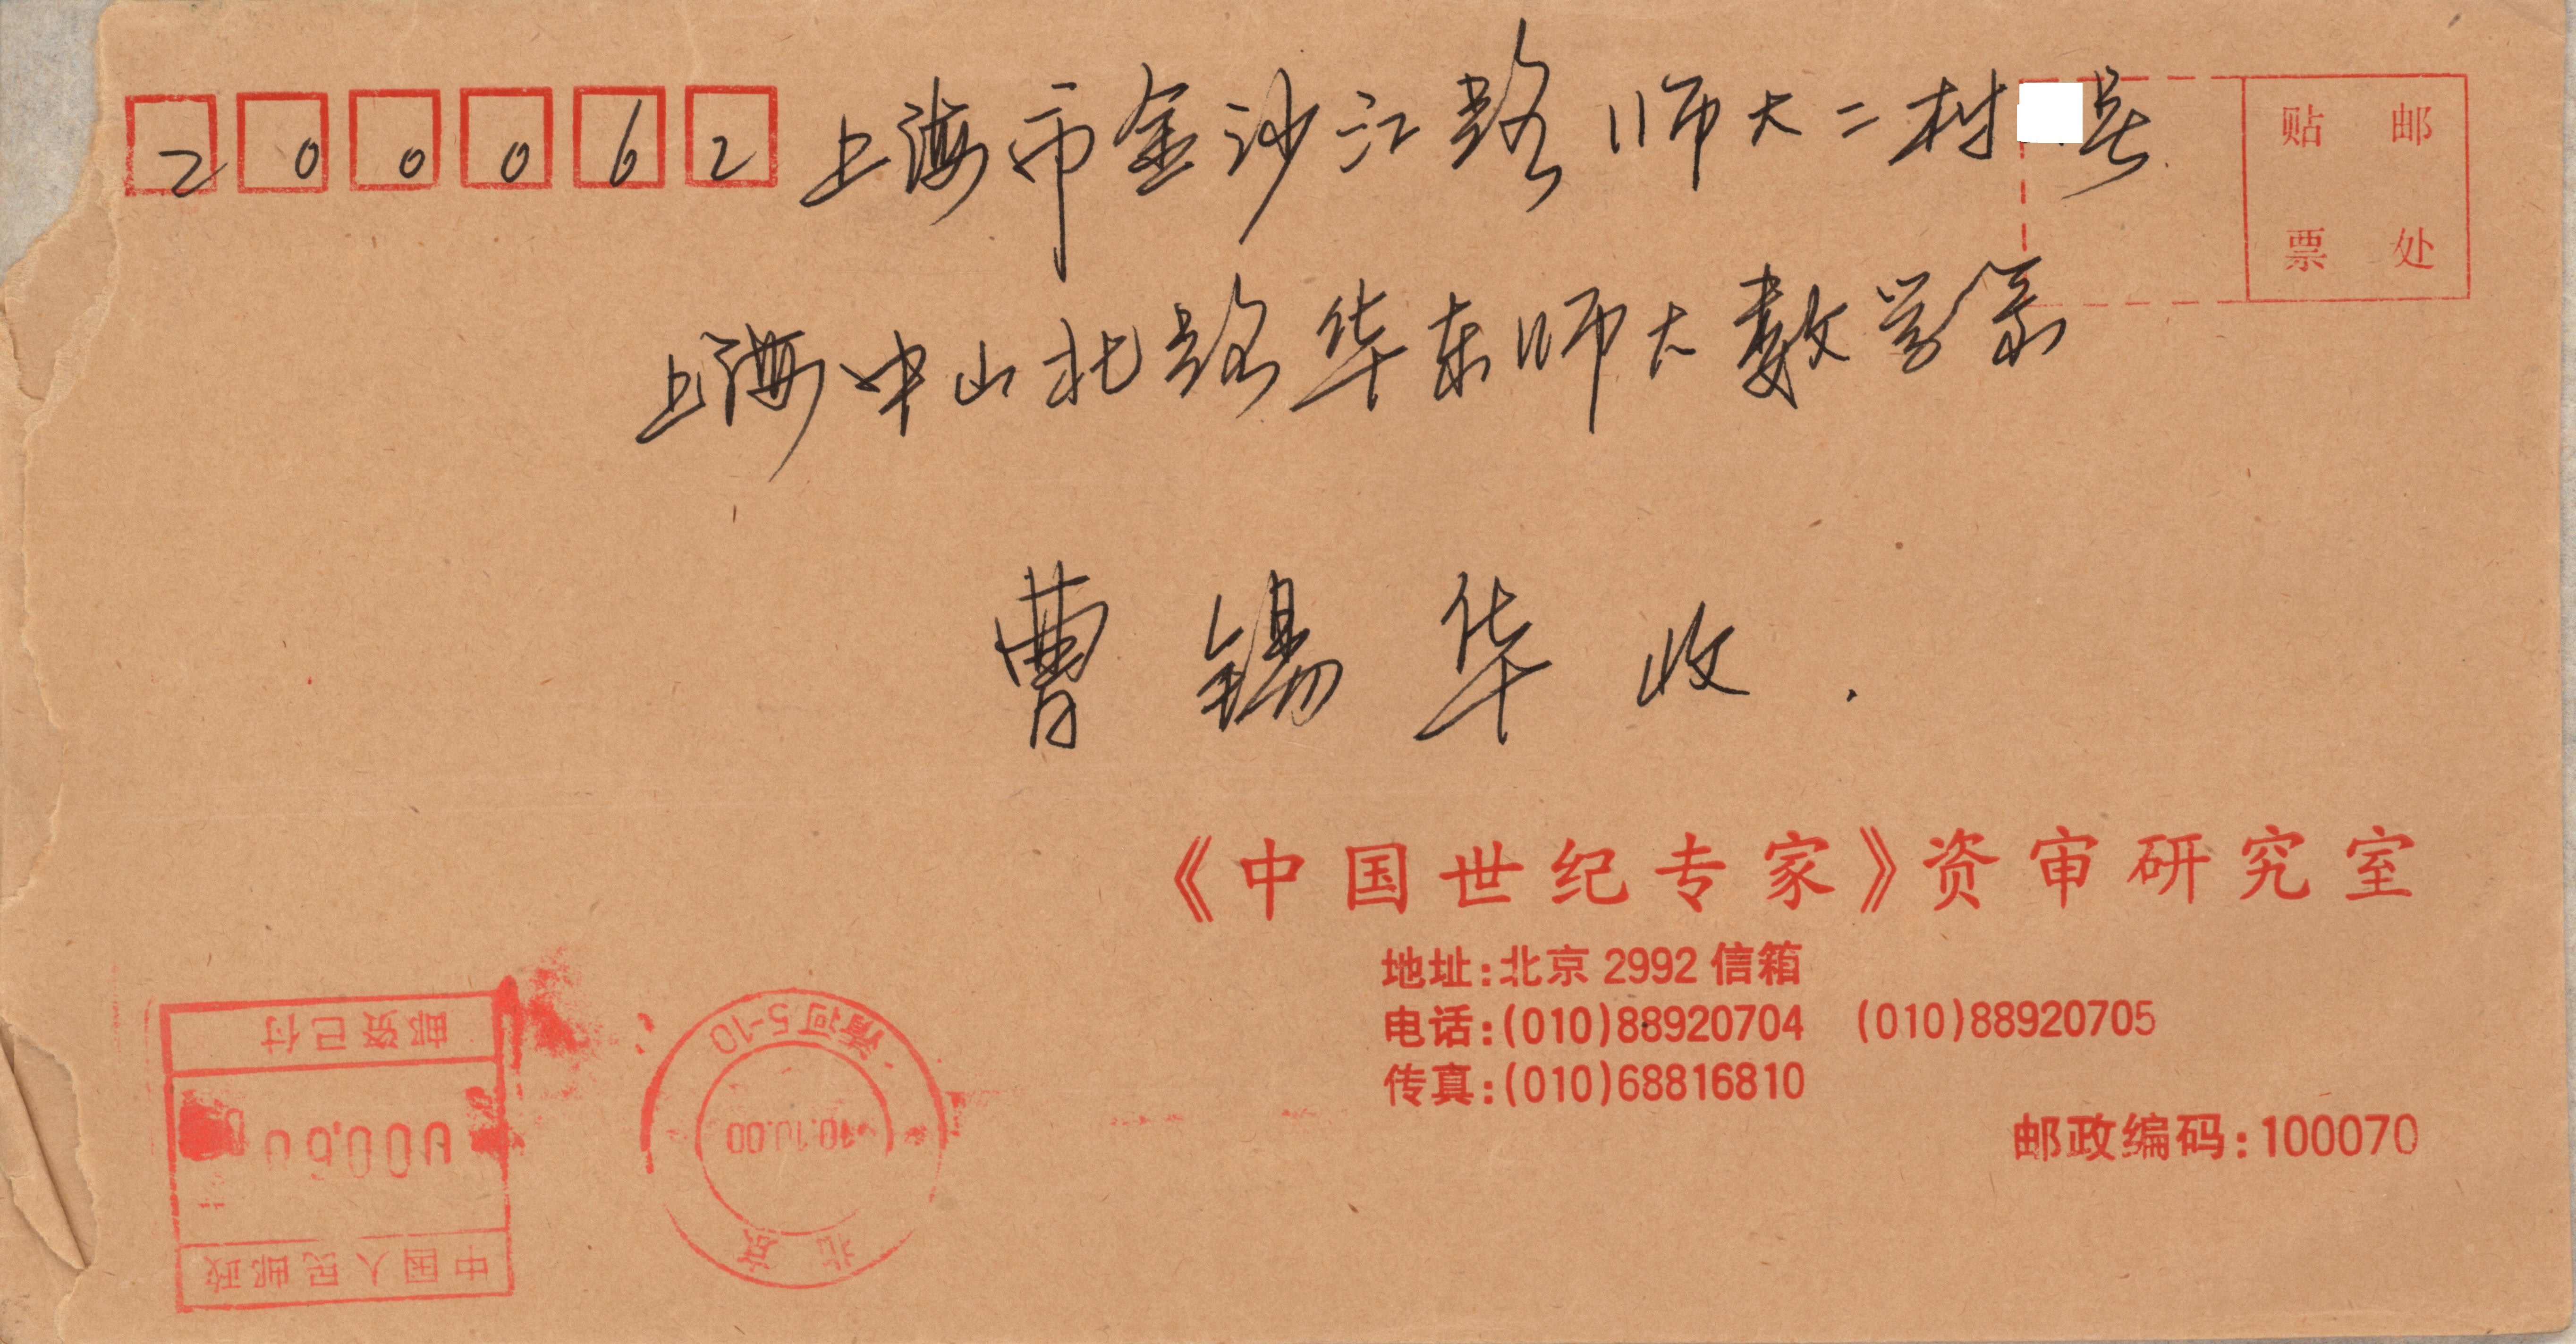 200062
上海市金沙江路师大二村 号
贴邮
票处
上海中山北路华东师大数学系
曹锡华收.
《中国世纪专家》资审研究室
地址:北京2992信箱
电话:(010)88920704 (010)88920705
传真:(010)68816810
邮政编码:100070
中国人民邮政
邮资已付
北京
10.10.00
清河5-10